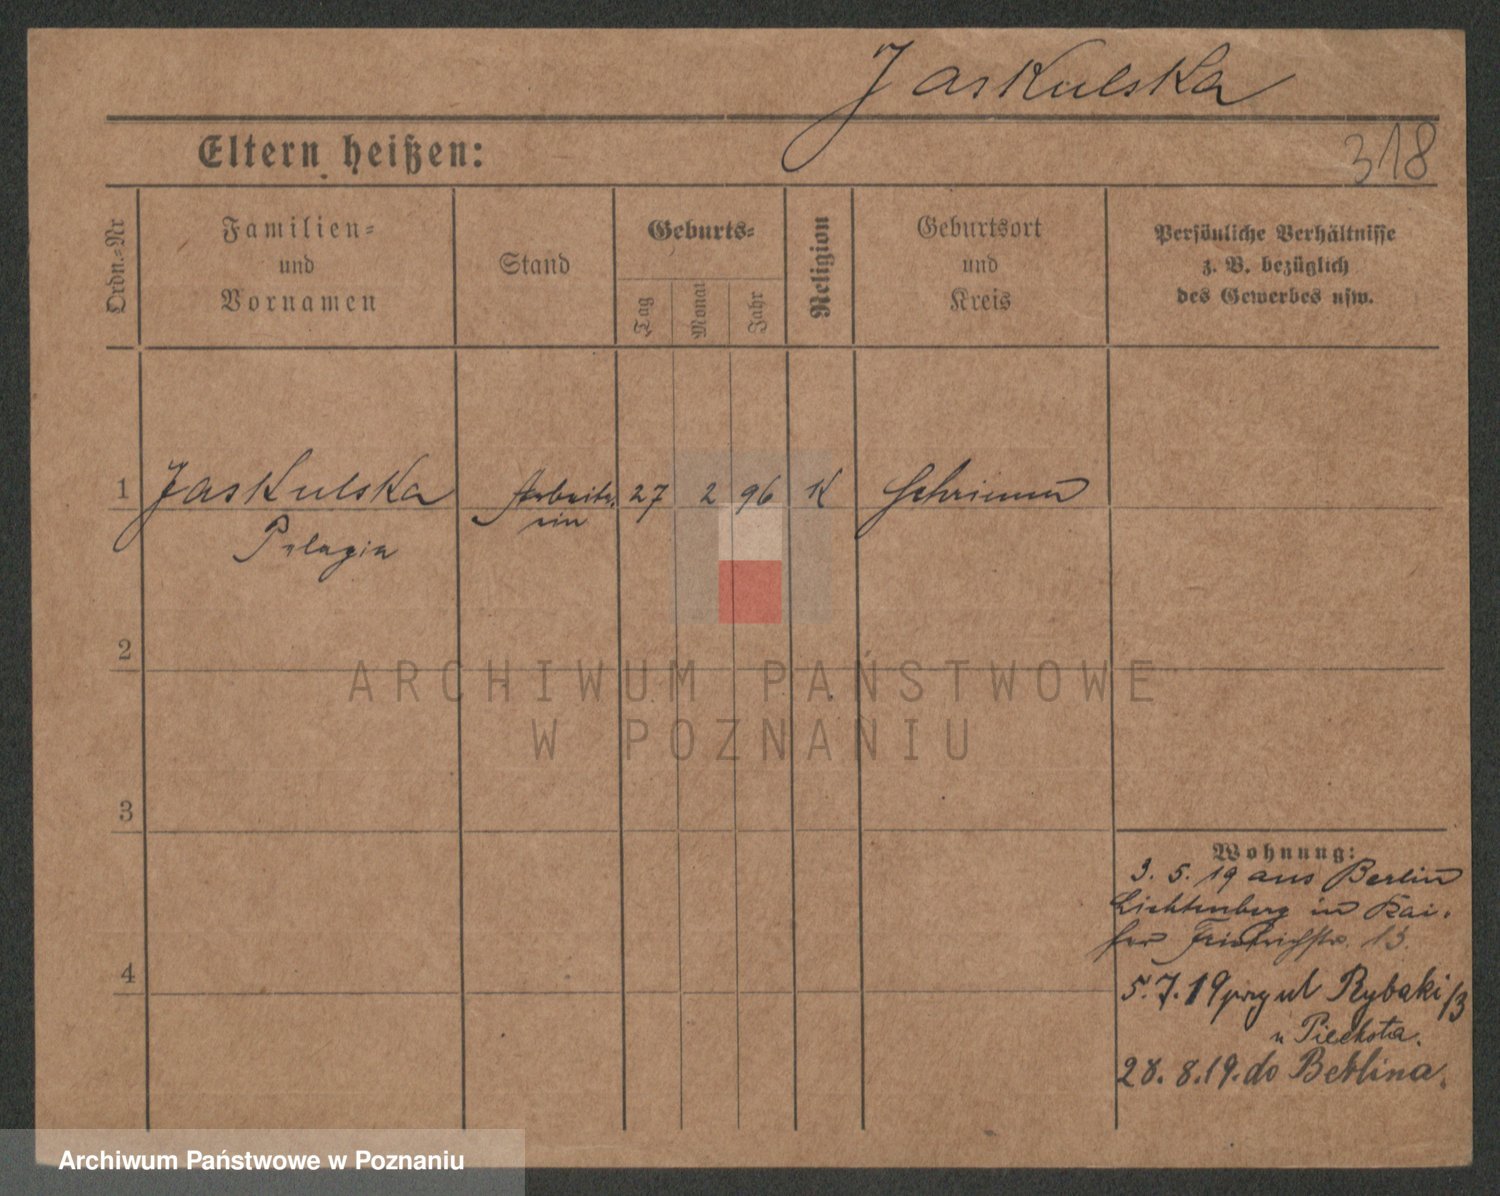 Jaskulska
Eltern heißen:
318
Ordn.-Nr
Familien-
und
Vornamen
Stand
Geburts-
Tag
Monat
Jahr
Religion
Geburtsort
und
Kreis
Persönliche Verhältnisse
z. B. bezüglich
des Gewerbes usw.
1 Jaskulska Arbeite. 27 2 96 K Schrimm
Pelagia rin
2
3
4
Wohnung:
3. 5. 19 aus Berlin
Lichtenberg in Kai-
ser Friedrichstr. 13.
5. 7. 19 przy ul Rybaki 13
u Piechota.
28. 8. 19. do Berlina.
ARCHIWUM PAŃSTWOWE
W POZNANIU
Archiwum Państwowe w Poznaniu